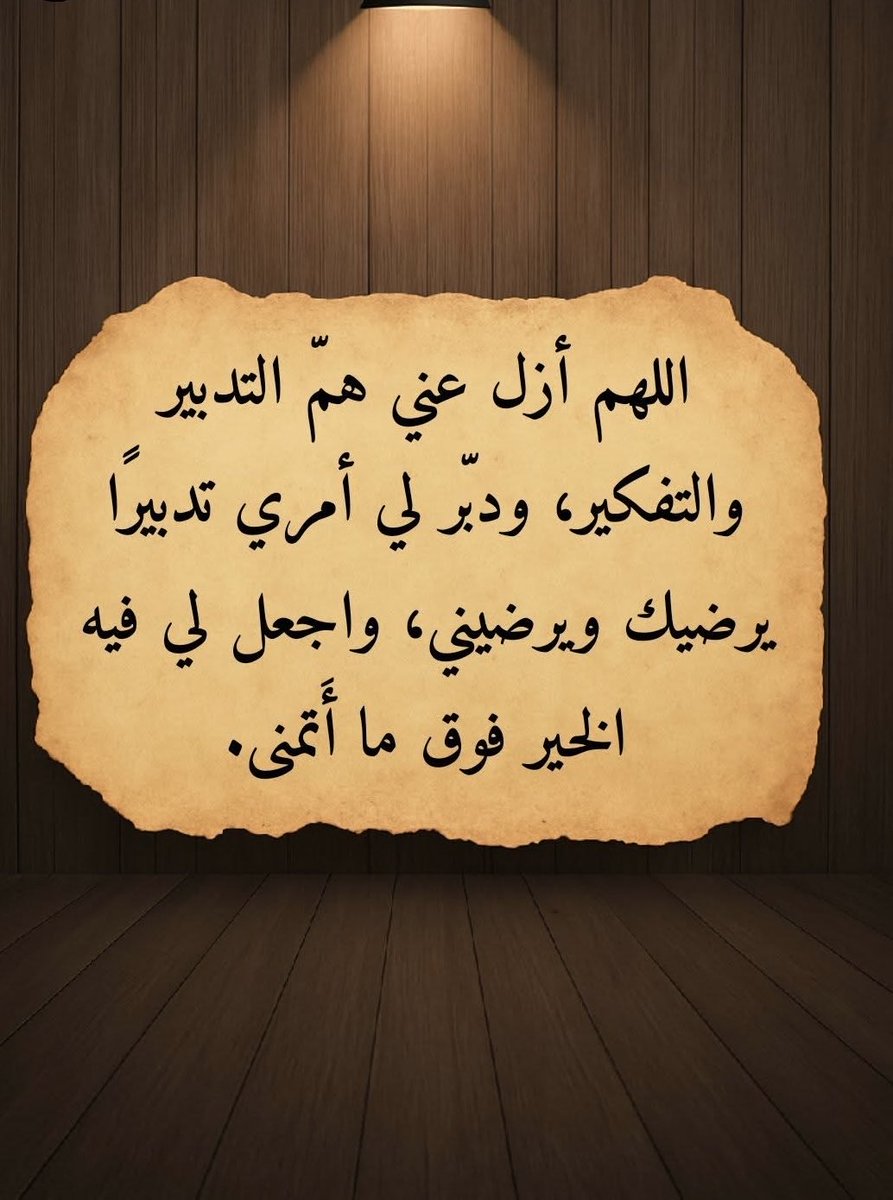 اللهم أزل عني همّ التدبير
والتفكير، ودبّر لي أمري تدبيرًا
يرضيك ويرضيني، واجعل لي فيه
الخير فوق ما أَتمنى.